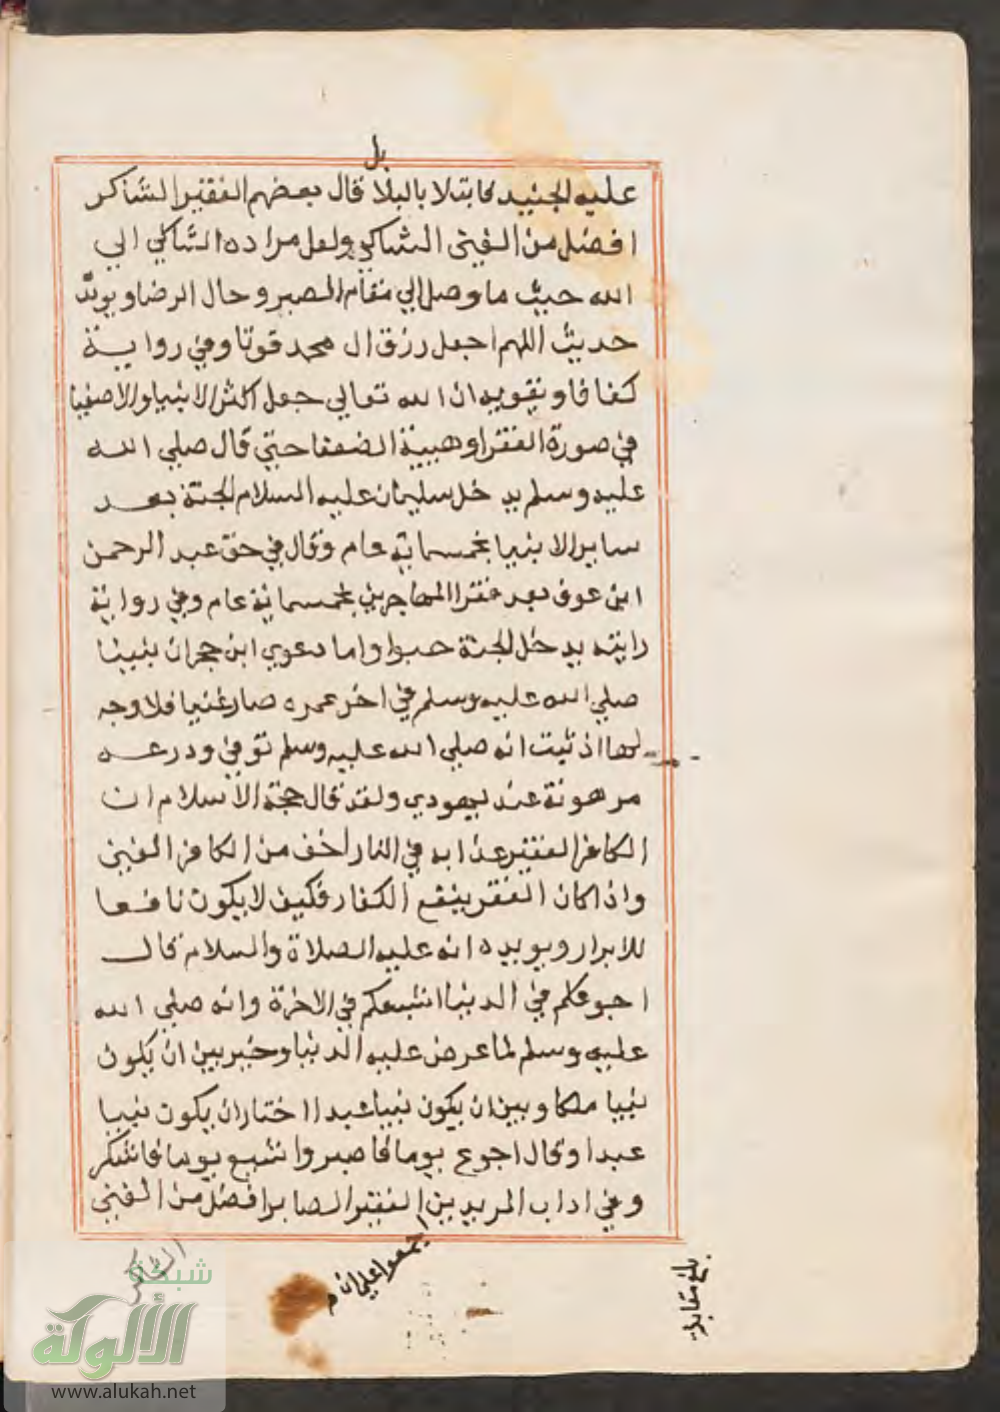 بل
عليه الجنيد فابتلا بالبلا قال بعضهم الفقير الشاكر
افضل من الغني الشاكي ولعل مراده الشاكي الي
الله حيث ما وصل الي مقام الصبر وحال الرضا ويويد
حديث اللهم اجعل رزق ال محمد قوتا وفي رواية
كفافا ونقويه ان الله تعالي جعل اكثر الانبيا والاصفيا
في صورة الفقرا وهيبة الضعفا حتي قال صلي الله
عليه وسلم يدخل سليمان عليه السلام الجنة بعد
ساير الانبيا بخمسماية عام وقال في حق عبد الرحمن
ابن عوف بعد فقرا المهاجرين بخمسماية عام وفي رواية
رايته يدخل الجنة حبوا واما دعوي ابن حجر ان نبينا
صلي الله عليه وسلم في اخر عمره صار غنيا فلا وجه
لها اذ ثبت انه صلي الله عليه وسلم توفي ودرعه
مرهونة عند يهودي ولقد قال حجة الاسلام ان
الكافر الفقير عذابه في النار اخف من الكافر الغني
واذا كان الفقر ينفع الكفار فكيف لا يكون نافعا
للابرار ويويده انه عليه الصلاة والسلام قال
اجوعكم في الدنيا اشبعكم في الاخرة وانه صلي الله
عليه وسلم لما عرض عليه الدنيا وخير بين ان يكون
نبيا ملكا وبين ان يكون نبيا عبدا اختار ان يكون نبيا
عبدا وقال اجوع يوما فاصبر واشبع يوما فاشكر
وفي اداب المريدين الفقير الصابر افضل من الغني
الشاكر
اجمعوا علي ان
بلغ مقابلة
شبكة
الألوكة
www.alukah.net